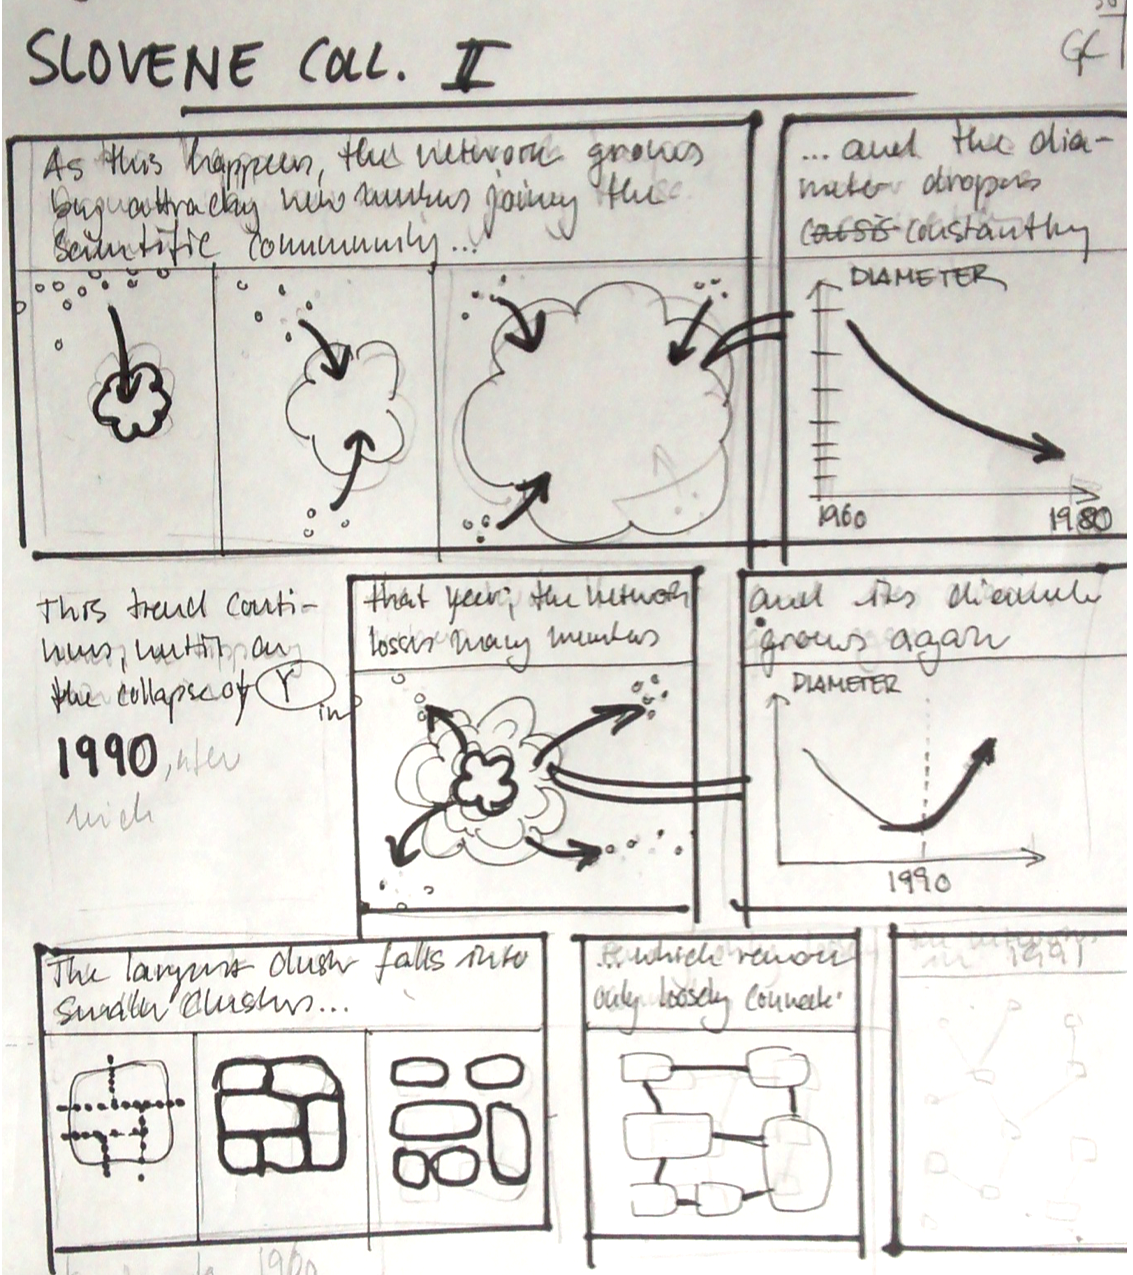 SLOVENE COLL. II
GC
As this happens, the network grows
by attracting new members joining the
scientific community...
... and the dia-
meter dropps
constanthy
DIAMETER
1960
1980
This trend conti-
nues, until
the collapse of Y
in
1990, after
which
that year, the network
losses many members
and its diameter
grows again
DIAMETER
1990
The largest cluster falls into
smaller clusters...
... which remain
only loosely connect.
the network
in 1991
1960